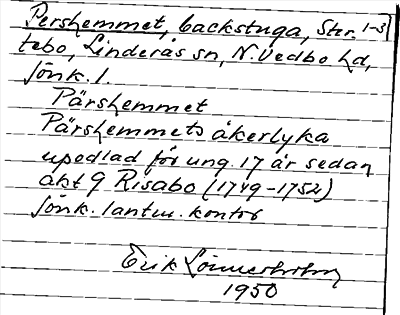 Pershemmet, backstuga, Str. 1-3
tebo, Linderås sn, N. Vedbo hd,
Jönk. l.
Pärshemmet
Pärshemmets åkerlyka
upodlad för ung. 17 år sedan
akt 9 Risabo (1749-1752)
Jönk. lantm. kontor
Erik
1950